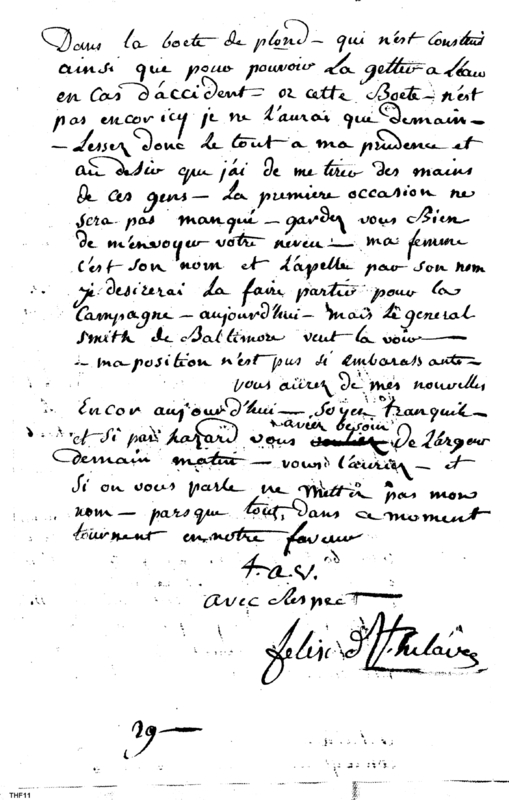 Dans la boete de plond - qui n'est Construi
ainsi que pour pouvoir La getter a L'eau
en Cas d'accident - or cette Boete - n'est
pas encor icy je ne L'aurai que demain -
- Lessez donc Le tout a ma prudence et
au desir que j'ai de me tirer des mains
de ces gens - La premiere occasion ne
sera pas manqué - gardez vous Bien
de m'envoyer votre neveu - ma femme
c'est son nom et L'apelle par son nom
je desirerai La faire partir pour la
Campagne - aujourd'hui - mais Le general
Smith de Baltimore veut la voir -
- ma position n'est pas si embarassante -
vous aurez de mes nouvelles
Encor aujourd'hui - soyez tranquil -
et si par hazard vous avier besoin de L'argen
demain matin - vous L'aurier - et
Si on vous parle ne metter pas mon
nom - parsque tout, dans ce moment
tournent en notre faveur
avec Respect
felix d'
29 -
THF11